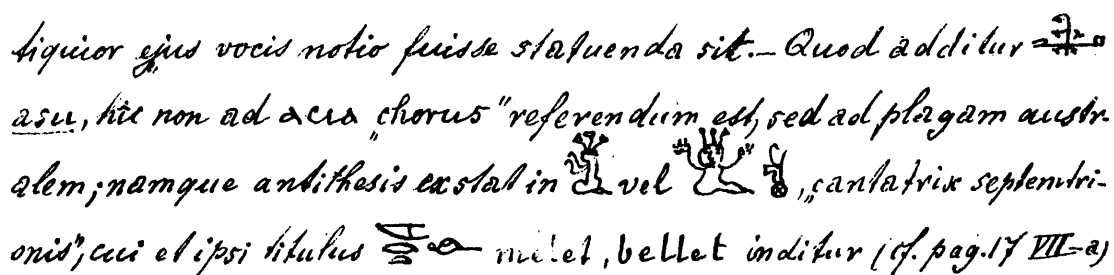 tiquior ejus vocis notio fuisse statuenda sit. – Quod additur
asu, hic non ad ⲁⲥⲓⲁ „chorus" referendum est, sed ad plagam austr-
alem; namque antithesis exstat in vel , „cantatrix septentri-
onis", cui et ipsi titulus melet, bellet inditur (cf. pag. 17 VII–a)